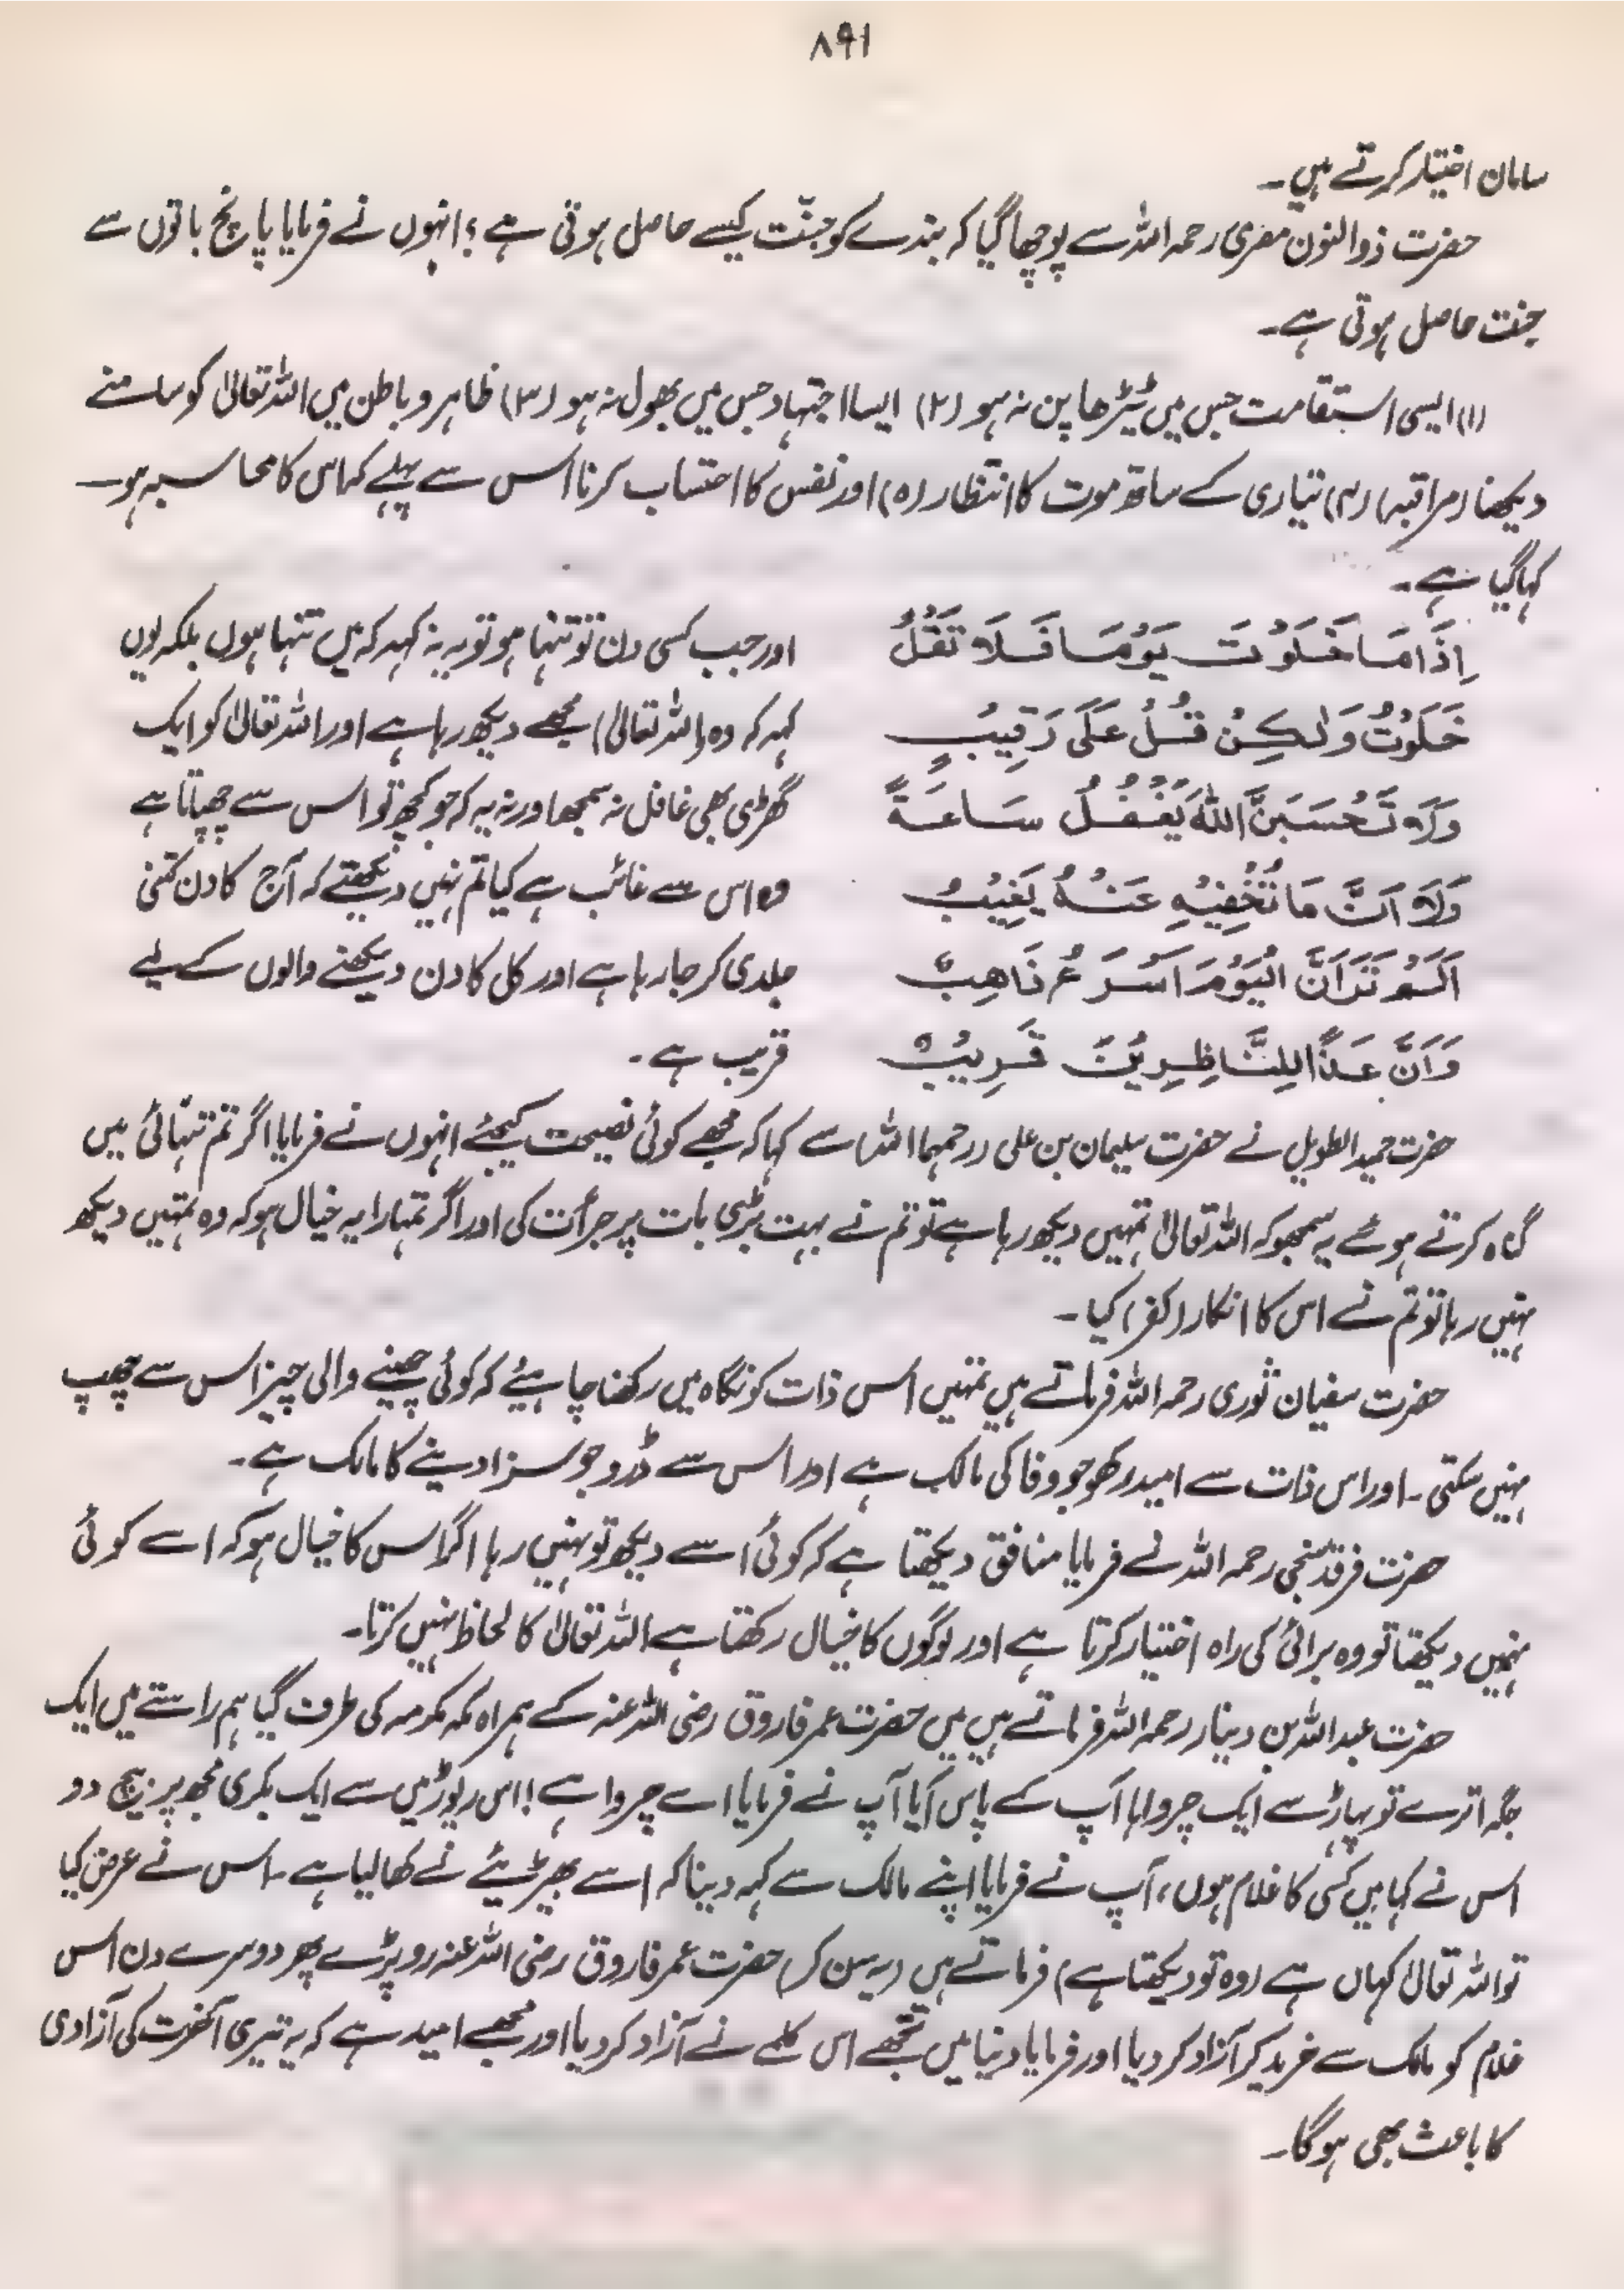 ۸۹۱
سامان اختیار کرتے ہیں۔
حضرت ذوالنون مصری رحمہ اللہ سے پوچھا گیا کہ بندے کو جنّت کیسے حاصل ہوتی ہے؟ انہوں نے فرمایا پانچ باتوں سے
جنت حاصل ہوتی ہے۔
(۱) ایسی استقامت جس میں ٹیڑھا پن نہ ہو (۲) ایسا اجتہاد جس میں بھول نہ ہو (۳) ظاہر و باطن میں اللہ تعالیٰ کو سامنے
دیکھنا (مراقبہ) (۴) تیاری کے ساتھ موت کا انتظار (۵) اور نفس کا احتساب کرنا اس سے پہلے کہ اس کا محاسبہ ہو—
کہا گیا ہے۔
اِذَا مَا خَلَوْتَ یَوْمًا فَلَا تَقُلْ
خَلَوْتُ وَلٰکِنْ قُلْ عَلَیَّ رَقِیْبٌ
وَلَا تَحْسَبَنَّ اللّٰہَ یَغْفُلُ سَاعَةً
وَلَا اَنَّ مَا تُخْفِیْہِ عَنْہُ یَغِیْبُ
اَلَمْ تَرَ اَنَّ الْیَوْمَ اَسْرَعُ ذَاھِبٌ
وَاَنَّ غَدًا لِلنَّاظِرِیْنَ قَرِیْبٌ
اور جب کسی دن تو تنہا ہو تو یہ نہ کہہ کہ میں تنہا ہوں بلکہ یوں
کہہ کہ وہ (اللہ تعالیٰ) مجھے دیکھ رہا ہے اور اللہ تعالیٰ کو ایک
گھڑی بھی غافل نہ سمجھ اور نہ یہ کہ جو کچھ تو اس سے چھپاتا ہے
وہ اس سے غائب ہے کیا تم نہیں دیکھتے کہ آج کا دن کتنی
جلدی کر جا رہا ہے اور کل کا دن دیکھنے والوں کے لیے
قریب ہے۔
حضرت حمید الطویل نے حضرت سلیمان بن علی (رحمہما اللہ) سے کہا کہ مجھے کوئی نصیحت کیجئے انہوں نے فرمایا اگر تم تنہائی میں
گناہ کرتے ہوئے یہ سمجھو کہ اللہ تعالیٰ تمہیں دیکھ رہا ہے تو تم نے بہت بڑی بات پر جرأت کی اور اگر تمہارا یہ خیال ہو کہ وہ تمہیں دیکھ
نہیں رہا تو تم نے اس کا انکار (کفر) کیا۔
حضرت سفیان ثوری رحمہ اللہ فرماتے ہیں تمہیں اس ذات کو نگاہ میں رکھنا چاہیئے کہ کوئی چھپنے والی چیز اس سے چھپ
نہیں سکتی۔ اور اس ذات سے امید رکھو جو وفا کی مالک ہے اور اس سے ڈرو جو سزا دینے کا مالک ہے۔
حضرت فرقد سنجی رحمہ اللہ نے فرمایا منافق دیکھتا ہے کہ کوئی اُسے دیکھ تو نہیں رہا اگر اس کا خیال ہو کہ اسے کوئی
نہیں دیکھتا تو وہ برائی کی راہ اختیار کرتا ہے اور لوگوں کا خیال رکھتا ہے اللہ تعالیٰ کا لحاظ نہیں کرتا۔
حضرت عبد اللہ بن دینار رحمہ اللہ فرماتے ہیں میں حضرت عمر فاروق رضی اللہ عنہ کے ہمراہ مکہ مکرمہ کی طرف گیا ہم راستے میں ایک
جگہ اترے تو پہاڑ سے ایک چرواہا آپ کے پاس آیا آپ نے فرمایا اے چرواہے! اس ریوڑ میں سے ایک بکری مجھ پر بیچ دو
اس نے کہا میں کسی کا غلام ہوں، آپ نے فرمایا اپنے مالک سے کہہ دینا کہ اسے بھیڑیئے نے کھا لیا ہے۔ اس نے عرض کیا
تو اللہ تعالیٰ کہاں ہے (وہ تو دیکھتا ہے) فرماتے ہیں (یہ سن کر) حضرت عمر فاروق رضی اللہ عنہ رو پڑے پھر دوسرے دن اس
غلام کو مالک سے خرید کر آزاد کر دیا اور فرمایا دنیا میں تجھے اس کلمے نے آزاد کر دیا اور مجھے امید ہے کہ یہ تیری آخرت کی آزادی
کا باعث بھی ہوگا۔